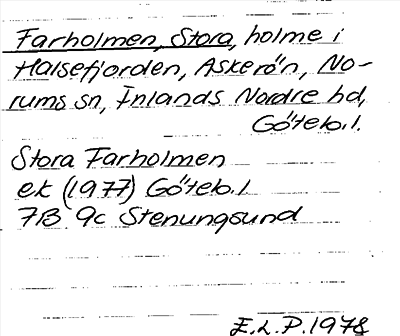 Farholmen, Stora, holme i
Halsefjorden, Askerön, No-
rums sn, Inlands Nordre hd,
Göteb.l.
Stora Farholmen
ek (1977) Göteb.l
7B 9c Stenungsund
E.L.P. 1978